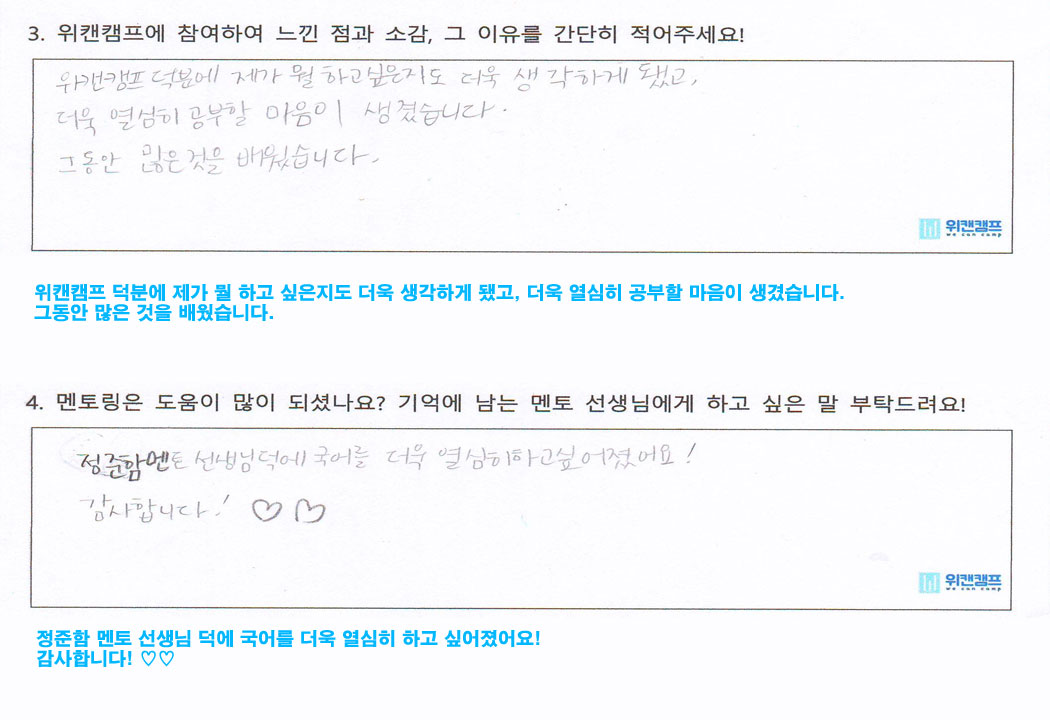 3. 위캔캠프에 참여하여 느낀 점과 소감, 그 이유를 간단히 적어주세요!
위캔캠프 덕분에 제가 뭘 하고싶은지도 더욱 생각하게 됐고,
더욱 열심히 공부할 마음이 생겼습니다.
그동안 많은 것을 배웠습니다.
위캔캠프
we can camp
위캔캠프 덕분에 제가 뭘 하고 싶은지도 더욱 생각하게 됐고, 더욱 열심히 공부할 마음이 생겼습니다.
그동안 많은 것을 배웠습니다.
4. 멘토링은 도움이 많이 되셨나요? 기억에 남는 멘토 선생님에게 하고 싶은 말 부탁드려요!
정준함멘토 선생님덕에 국어를 더욱 열심히하고싶어졌어요!
감사합니다! ♡♡
위캔캠프
we can camp
정준함 멘토 선생님 덕에 국어를 더욱 열심히 하고 싶어졌어요!
감사합니다! ♡♡